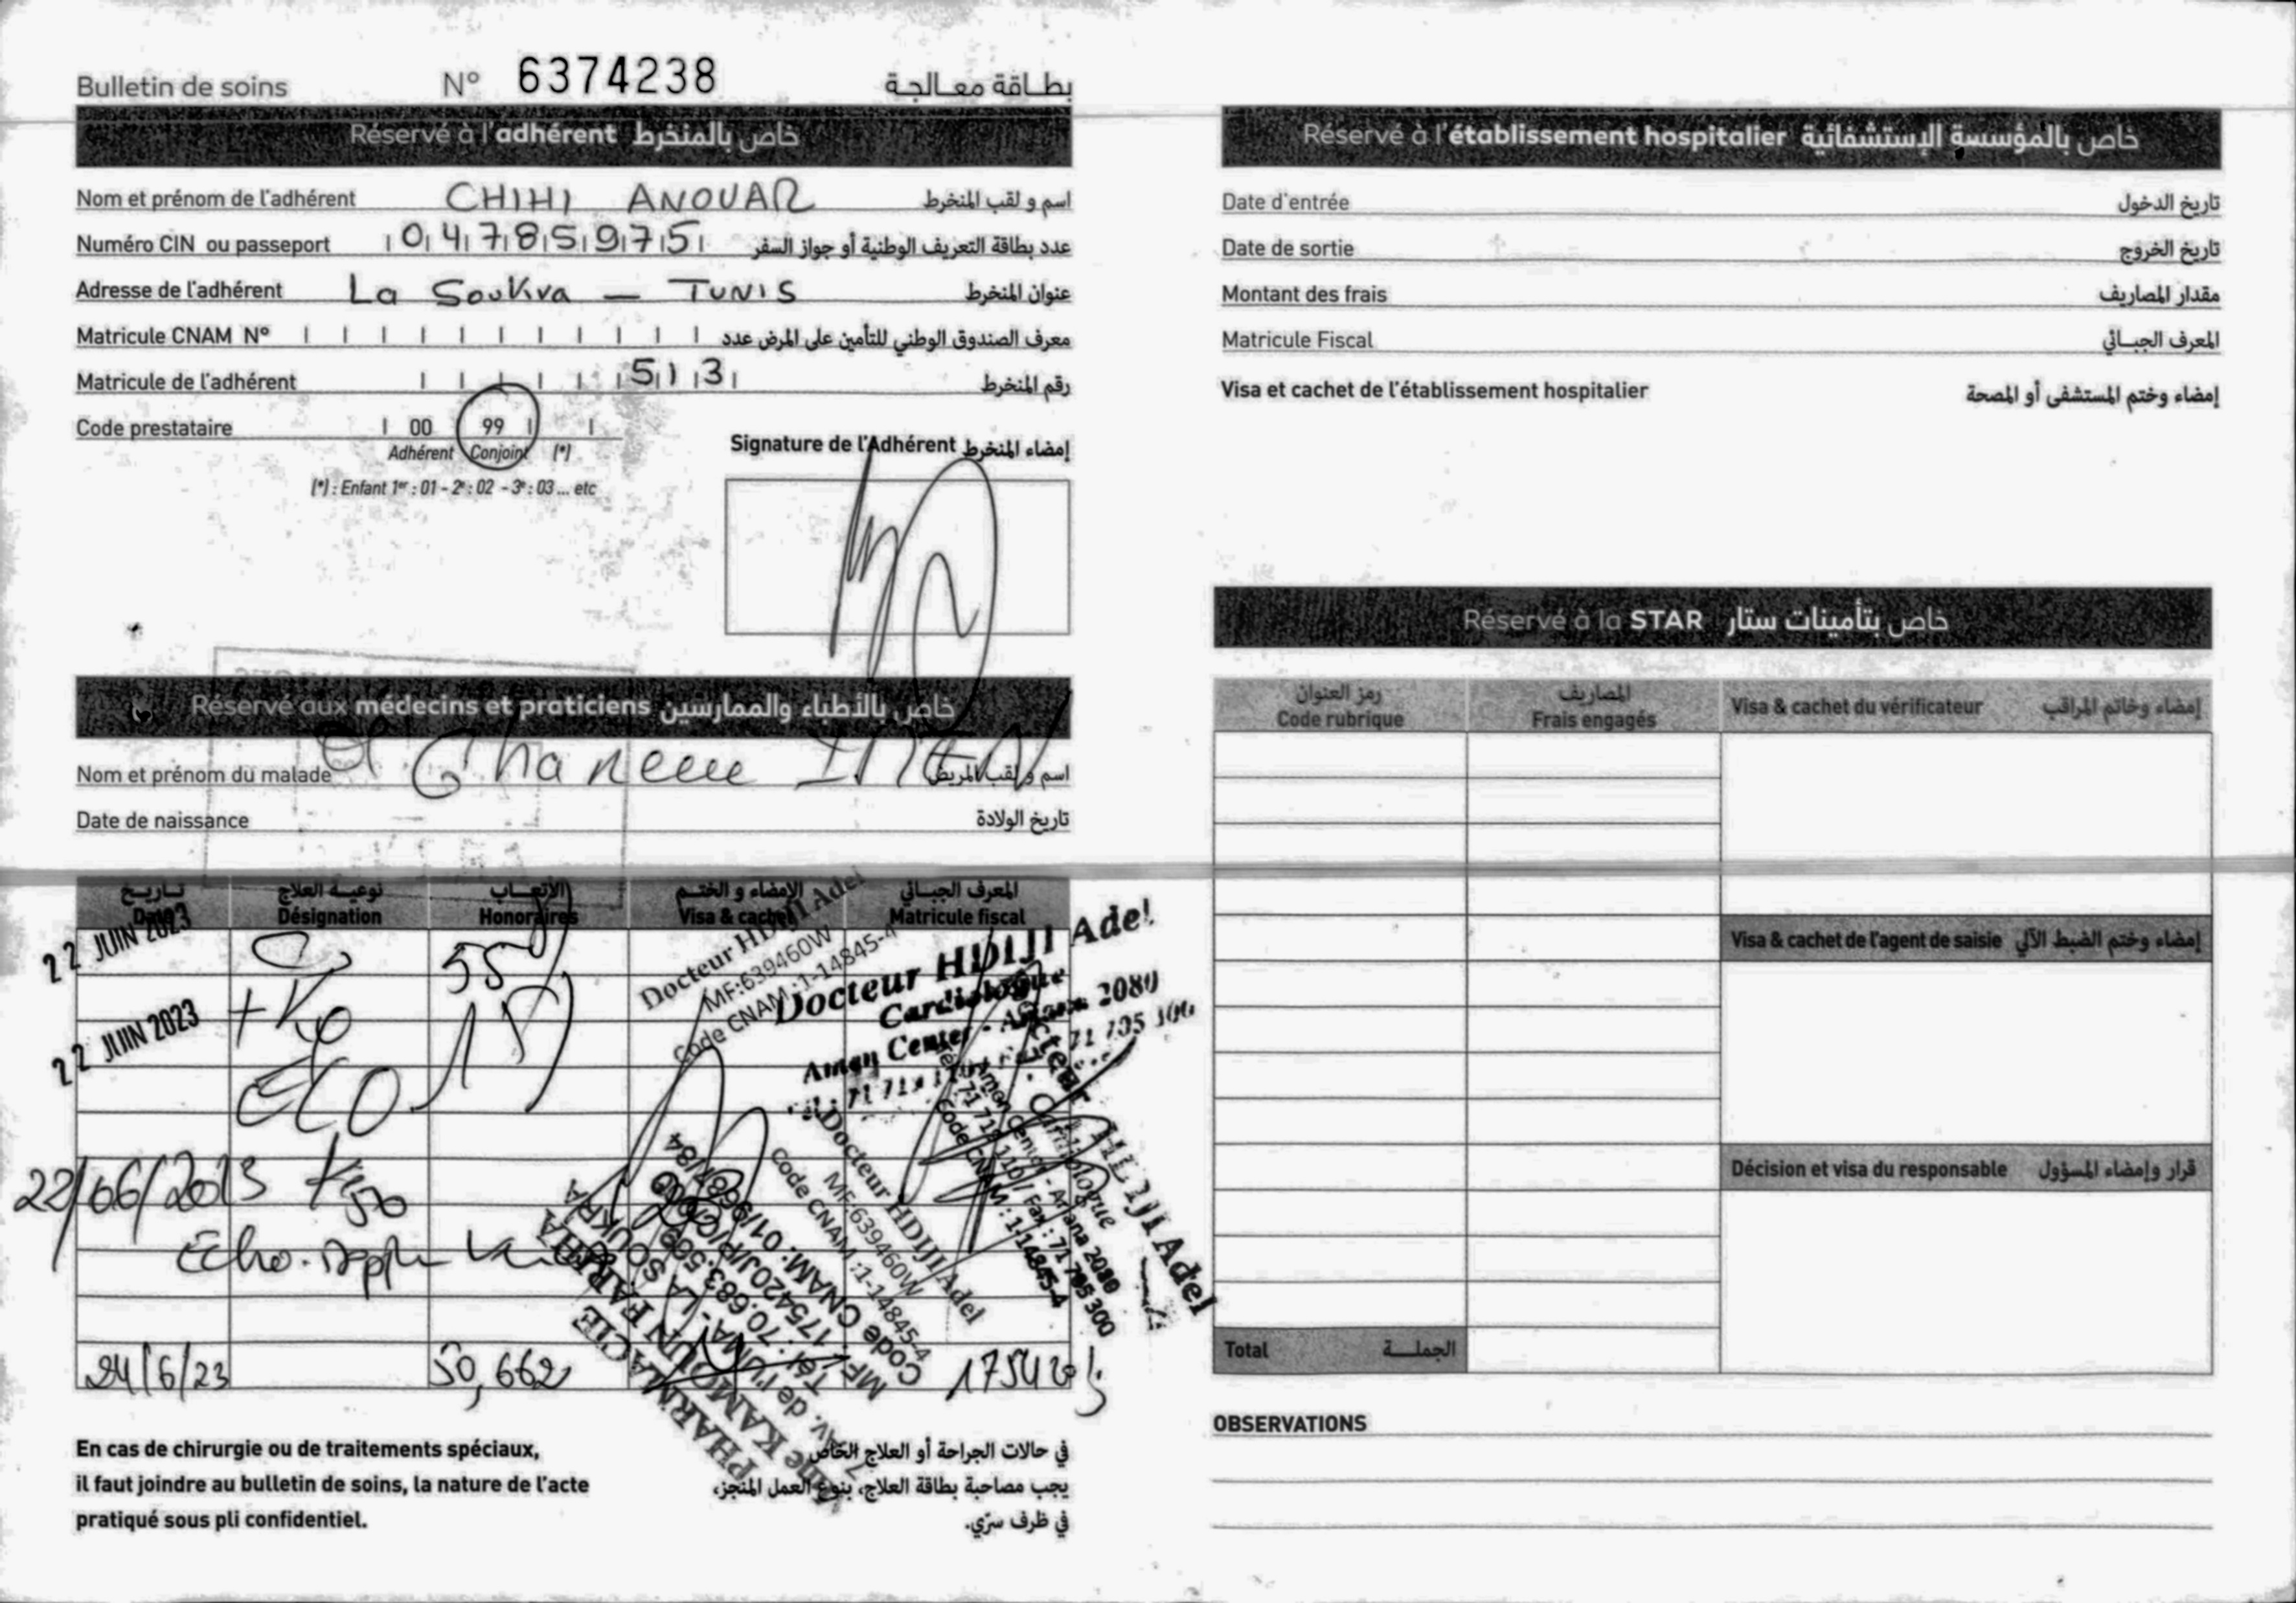 Bulletin de soins N° 6374238 بطاقة معالجة
Réservé à l'adhérent خاص بالمنخرط
Nom et prénom de l'adhérent CHIHI ANOUAR اسم و لقب المنخرط
Numéro CIN ou passeport 04785975 عدد بطاقة التعريف الوطنية أو جواز السفر
Adresse de l'adhérent La Soukra – TUNIS عنوان المنخرط
Matricule CNAM N° معرف الصندوق الوطني للتأمين على المرض عدد
Matricule de l'adhérent 513 رقم المنخرط
Code prestataire 00 99
Adhérent Conjoint (*)
(*) : Enfant 1er : 01 - 2e : 02 - 3e : 03 ... etc
Signature de l'Adhérent إمضاء المنخرط
Réservé aux médecins et praticiens خاص بالأطباء والممارسين
Nom et prénom du malade Ghanem اسم و لقب المريض
Date de naissance تاريخ الولادة
تاريخ نوعية العلاج الأتعاب الإمضاء و الختم المعرف الجبائي
Date Désignation Honoraires Visa & cachet Matricule fiscal
22 JUIN 2023 55
22 JUIN 2023
ECO
22/06/2023 K50
Echo.
24/6/23 50,662
Docteur HDIJI Adel
MF:639460W
Code CNAM :1-14845-4
Docteur HDIJI Adel
Cardiologue
Aman Center - Ariana 2080
Docteur HDIJI Adel
Cardiologue
Aman Center - Ariana 2080
Tél : 71 719 110 / Fax : 71 705 300
Code CNAM : 1-14845-4
Docteur HDIJI Adel
MF:639460W
Code CNAM :1-14845-4
PHARMACIE
KAMOUN FARIHA
7 Av. de l'UMA - LA SOUKRA
Tél : 70.683.569
Code CNAM: 01/
En cas de chirurgie ou de traitements spéciaux,
il faut joindre au bulletin de soins, la nature de l'acte
pratiqué sous pli confidentiel.
في حالات الجراحة أو العلاج الخاص
يجب مصاحبة بطاقة العلاج، بنوع العمل المنجز،
في ظرف سرّي.
Réservé à l'établissement hospitalier خاص بالمؤسسة الإستشفائية
Date d'entrée تاريخ الدخول
Date de sortie تاريخ الخروج
Montant des frais مقدار المصاريف
Matricule Fiscal المعرف الجبائي
Visa et cachet de l'établissement hospitalier إمضاء وختم المستشفى أو المصحة
Réservé à la STAR خاص بتأمينات ستار
رمز العنوان المصاريف
Code rubrique Frais engagés Visa & cachet du vérificateur إمضاء وخاتم المراقب
Visa & cachet de l'agent de saisie إمضاء وختم الضبط الآلي
Décision et visa du responsable قرار وإمضاء المسؤول
Total الجملة
OBSERVATIONS